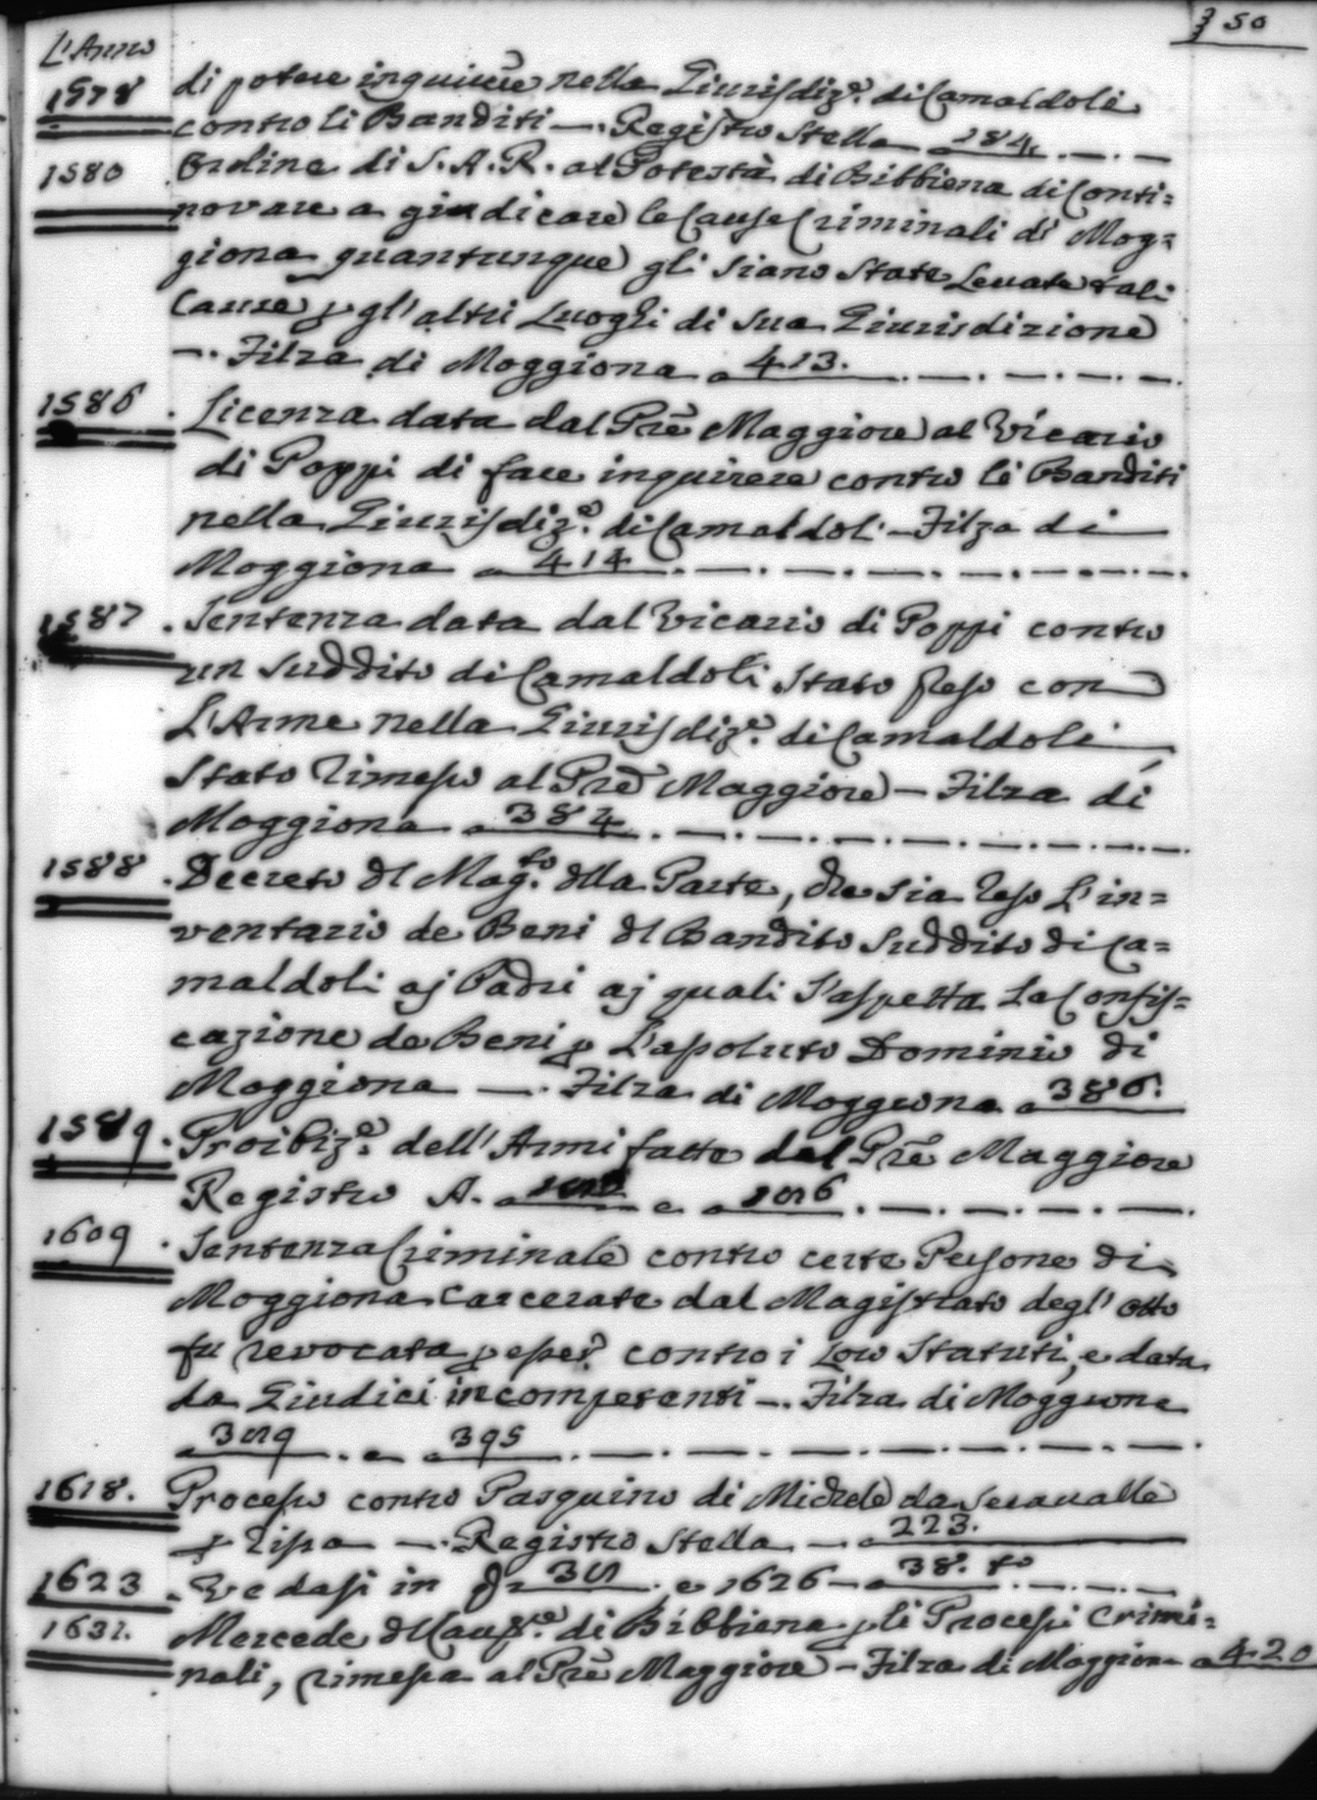 350
L'Anno
1578 di potere inquirere nella Giurisdiz.e di Camaldoli
contro li Banditi —. Registro Stella a 184.
1580 Ordine di S. A. R. al Potestà di Bibbiena di Conti=
novare a giudicare le Cause Criminali di Mog=
giona quantunque gli siano State Levate tali
Cause p gl'altri Luoghi di sua Giurisdizione
—. Filza di Moggiona a 413.
1586. Licenza data dal Prē Maggiore al Vicario
di Poppi di fare inquirere contro li Banditi
nella Giurisdiz.e di Camaldoli — Filza di
Moggiona a 414.
1587. Sentenza data dal Vicario di Poppi contro
un Suddito di Camaldoli Stato Preso con
L'Arme nella Giurisdiz.e di Camaldoli
Stato rimesso al Prē Maggiore — Filza di
Moggiona a 384.
1588. Decreto dl Mag.to dlla Parte, che sia reso L'in=
ventario de Beni dl Bandito Suddito di Ca=
maldoli aj Padri aj quali s'aspetta La Confis=
cazione de Beni p L'assoluto Dominio di
Moggiona —. Filza di Moggiona a 386.
1589. Proibiz.e dell'Armi fatte dal Prē Maggiore
Registro A. a e a
1609. Sentenza Criminale contro certe Persone di
Moggiona Carcerate dal Magistrato degl'otto
fu revocata p esser contro i Loro Statuti, e data
da Giudici incompetenti —. Filza di Moggiona
a e a 395
1618. Processo contro Pasquino di Michele da Seravalle
p rissa —. Registro Stella — a 223.
1623. Vedasi in a e 1626 — a 38. to
1631. Mercede dl Caus.re di Bibbiena p li Processi Crimi=
nali, rimessa al Prē Maggiore — Filza di Moggiona a 420